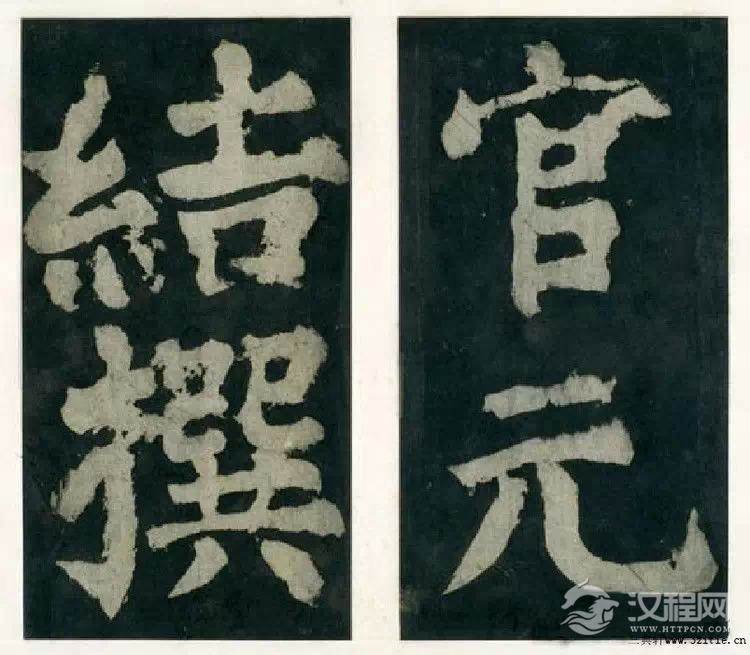 官元
結撰
汉程网
WWW.HTTPCN.COM
www.321tie.cn